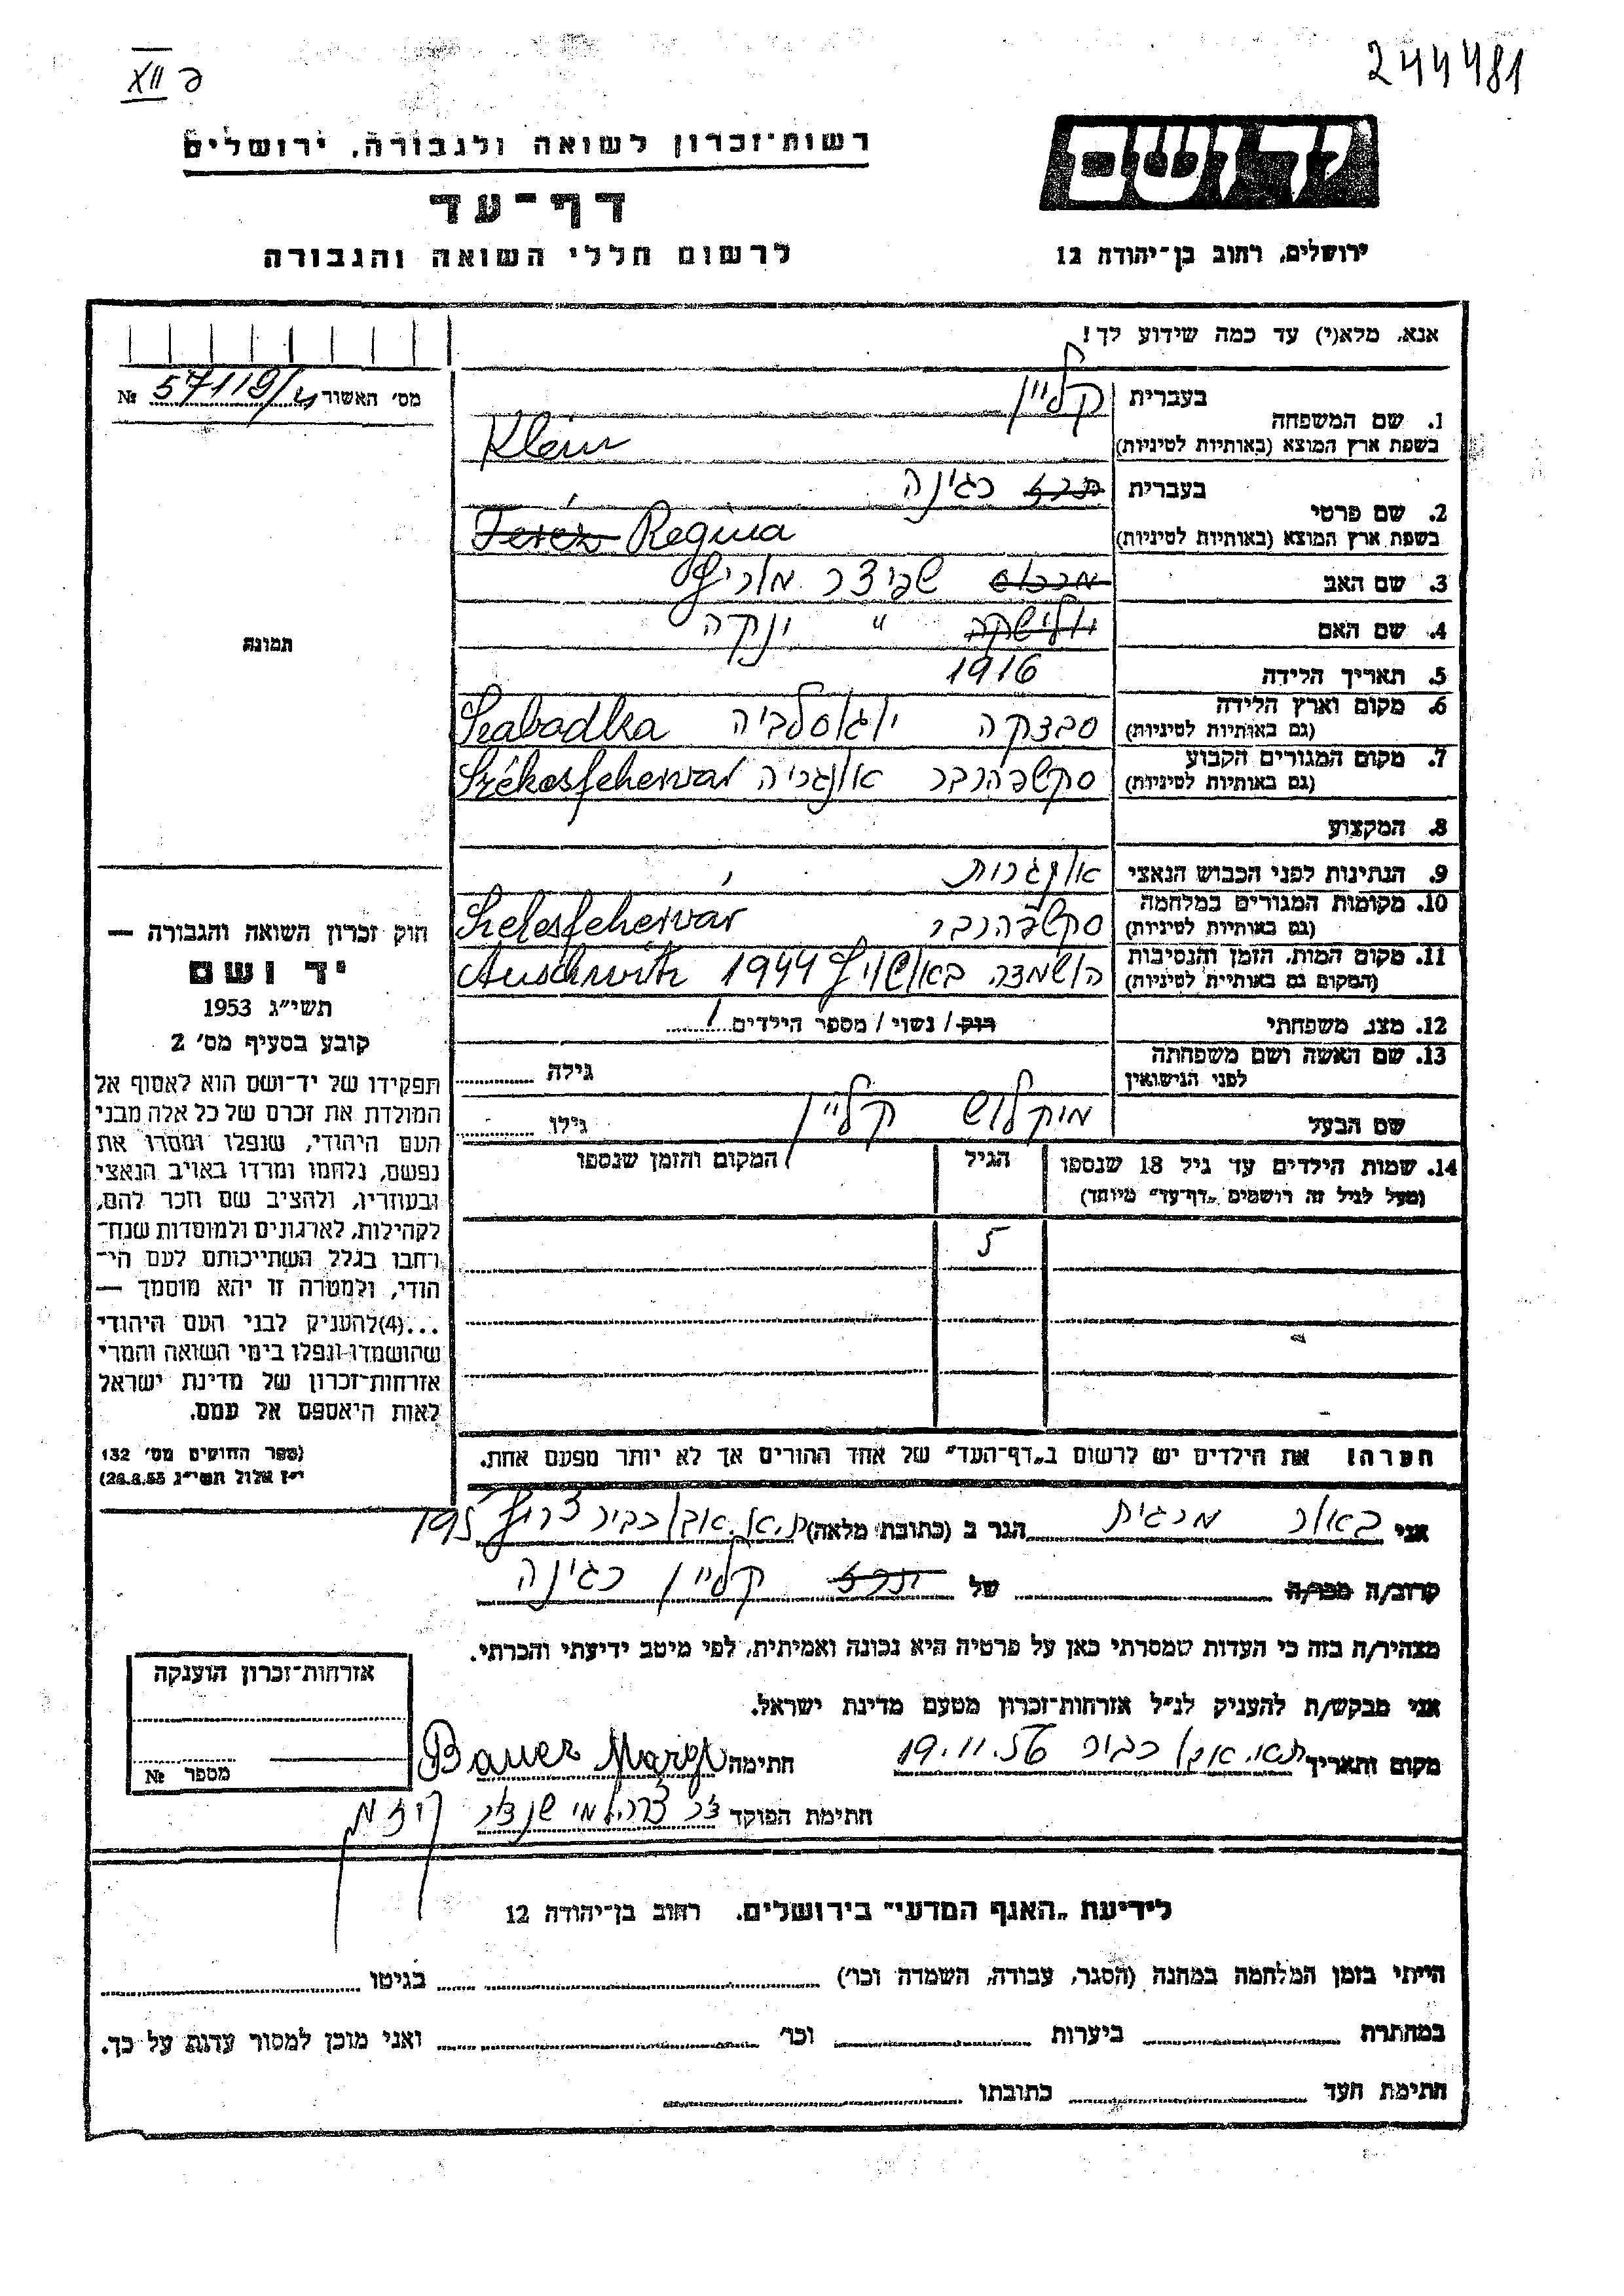 XII פ
244481
רשות־זכרון לשואה ולגבורה, ירושלים
דף־עד
לרשום חללי השואה והגבורה
יד ושם
ירושלים, רחוב בן־יהודה 12
אנא, מלא(י) עד כמה שידוע לך!
מס' האשור 57119/ № 
1. שם המשפחה
בעברית קליין
בשפת ארץ המוצא (באותיות לטיניות) Klein
2. שם פרטי
בעברית תרז רגינה
בשפת ארץ המוצא (באותיות לטיניות) Teréz Regina
3. שם האב מרכוס שפיצר מוריץ
4. שם האם יולישקה " ינקה
5. תאריך הלידה 1916
6. מקום וארץ הלידה
(גם באותיות לטיניות) סבצקה יוגוסלביה Szabadka
7. מקום המגורים הקבוע
(גם באותיות לטיניות) סקשפהרבר אונגריה Székesfehervár
8. המקצוע
9. הנתינות לפני הכבוש הנאצי אונגרות
10. מקומות המגורים במלחמה
(גם באותיות לטיניות) סקשפהרבר Szekesfehervár
11. מקום המות, הזמן והנסיבות
(המקום גם באותיות לטיניות) הושמדה באושויץ 1944 Auschwitz
12. מצב משפחתי רוק / נשוי / מספר הילדים 1
13. שם האשה ושם משפחתה
לפני הנישואין גילה
שם הבעל מיקלוש קליין גילו
14. שמות הילדים עד גיל 18 שנספו הגיל המקום והזמן שנספו
(מעל לגיל זה רושמים „דף־עד” מיוחד)
5
הערה! את הילדים יש לרשום ב„דף־העד” של אחד ההורים אך לא יותר מפעם אחת.
תמונה
חוק זכרון השואה והגבורה —
יד ושם
תשי״ג 1953
קובע בסעיף מס' 2
תפקידו של יד־ושם הוא לאסוף אל
המולדת את זכרם של כל אלה מבני
העם היהודי, שנפלו ומסרו את
נפשם, נלחמו ומרדו באויב הנאצי
ובעוזריו, ולהציב שם וזכר להם,
לקהילות, לארגונים ולמוסדות שנח־
רבו בגלל השתייכותם לעם הי־
הודי, ולמטרה זו יהא מוסמך —
...(4)להעניק לבני העם היהודי
שהושמדו ונפלו בימי השואה והמרי
אזרחות־זכרון של מדינת ישראל
לאות היאספם אל עמם.
(ספר החוקים מס' 132
י״ז אלול תשי״ג 28.8.53)
אני באור מרגית הגר ב (כתובת מלאה) ת.א. אבו כביר צריף 195
קרוב/ה מכר/ה של תרז קליין רגינה
מצהיר/ה בזה כי העדות שמסרתי כאן על פרטיה היא נכונה ואמיתית, לפי מיטב ידיעתי והכרתי.
אני מבקש/ת להעניק לנ״ל אזרחות־זכרון מטעם מדינת ישראל.
מקום ותאריך ת.א. אבו כביר 19.11.56 חתימה Bauer Margit
חתימת הפוקד
אזרחות־זכרון הוענקה
מספר №
לידיעת „האגף המדעי” בירושלים, רחוב בן־יהודה 12
הייתי בזמן המלחמה במחנה (הסגר, עבודה, השמדה וכו') בגיטו
במחתרת ביערות וכו' ואני מוכן למסור עדות על כך.
חתימת העד כתובתו